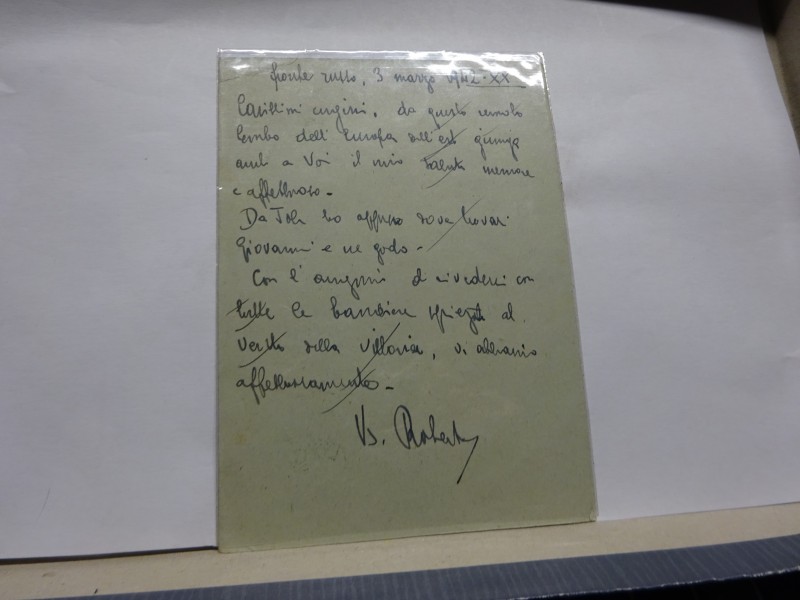 fronte russo, 3 marzo 1942-XX
Carissimi cugini, da questo remoto
lembo dell'Europa dell'est giunga
anche a Voi il mio saluto memore
e affettuoso -
Da Tolu ho appreso dove trovasi
Giovanni e ne godo -
Con l'augurio di rivederci con
tutte le bandiere spiegate al
vento della vittoria, vi abbraccio
affettuosamente -
Vs. Roberto